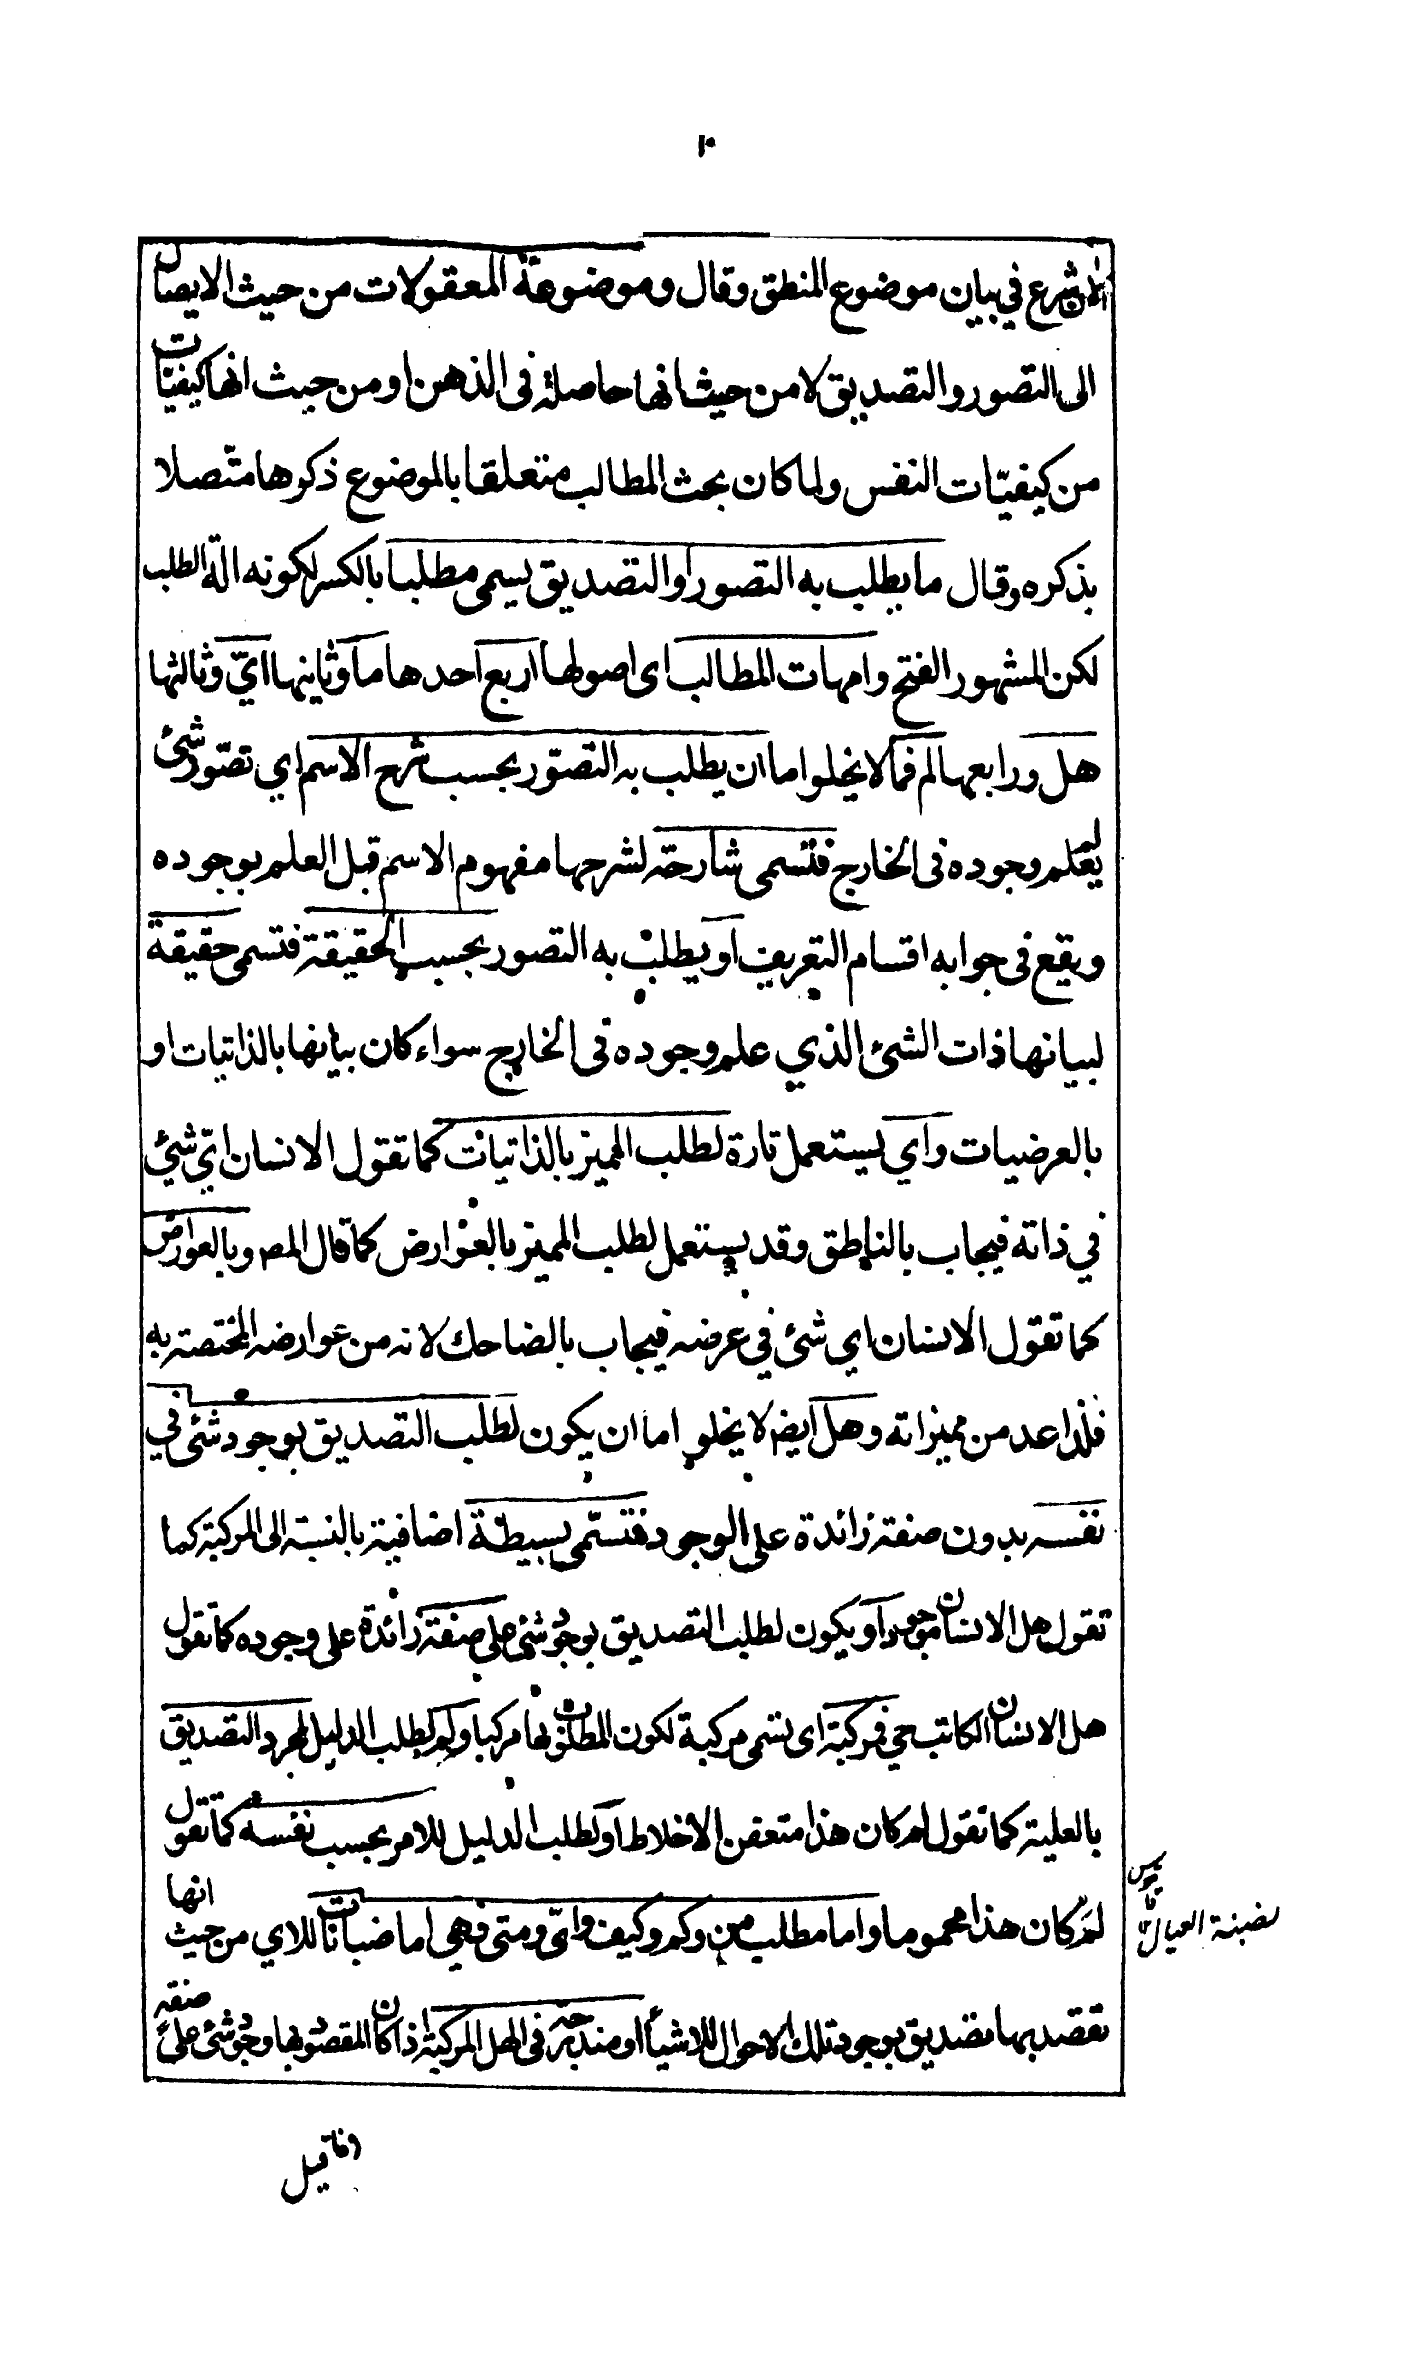 ١٠
الان شرع في بيان موضوع المنطق وقال وموضوعة المعقولات من حيث الايصال
الى التصور والتصديق لا من حيث انها حاصلة فى الذهن او من حيث انها كيفيات
من كيفيّات النفس ولما كان بحث المطالب متعلقا بالموضوع ذكرها متّصلا
بذكره وقال ما يطلب به التصور او التصديق يسمى مطلبا بالكسر لكونه الة الطلب
لكن المشهور الفتح وامهات المطالب اى اصولها اربع احدها ما وثانيها ايّ وثالثها
هل ورابعها لم فما لا يخلوا اما ان يطلب به التصوّر بحسب شرح الاسم اي تصّور شئ
لم يعلم وجوده فى الخارج فتسمى شارحة لشرحها مفهوم الاسم قبل العلم بوجوده
ويقع فى جوابه اقسام التعريف او يطلب به التصور بحسب الحقيقة فتسمى حقيقة
لبيانها ذات الشئ الذي علم وجوده فى الخارج سواء كان بيانها بالذاتيات او
بالعرضيات واي يستعمل تارة لطلب المميز بالذاتيات كما تقول الانسان ايّ شئ
في ذاته فيجاب بالناطق وقد يستعمل لطلب المميز بالعوارض كما قال المص وبالعوارض
كما تقول الانسان اي شئ في عرضه فيجاب بالضاحك لانه من عوارضه المختصة به
فلذا عد من مميزاته وهل ايضا لا يخلو اما ان يكون لطلب التصديق بوجود شئ في
نفسه بدون صفة زائدة على الوجود فتسمّى بسيطة اضافية بالنسبة الى المركبة كما
تقول هل الانسان موجود او يكون لطلب التصديق بوجود شئ على صفة زائدة على وجوده كما تقول
هل الانسان الكاتب حي فمركبة اى تسمى مركبة لكون المطلوب بها مركبا ولم لطلب الدليل لمجرد التصديق
بالعلية كما تقول لم كان هذا متعفن الاخلاط او لطلب الدليل للامر بحسب نفسه كما تقول
لم كان هذا محموما واما مطلب من وكم وكيف وايّ ومتى فهي اما ضبانات للاي من حيث انها
تقصد بها تصديق بوجود تلك الاحوال للاشيأ او مندرجة فى الهل المركبة اذا كان المقصود بها وجود شئ على صفة
ضبنة العيال
قاموس
وقا قيل